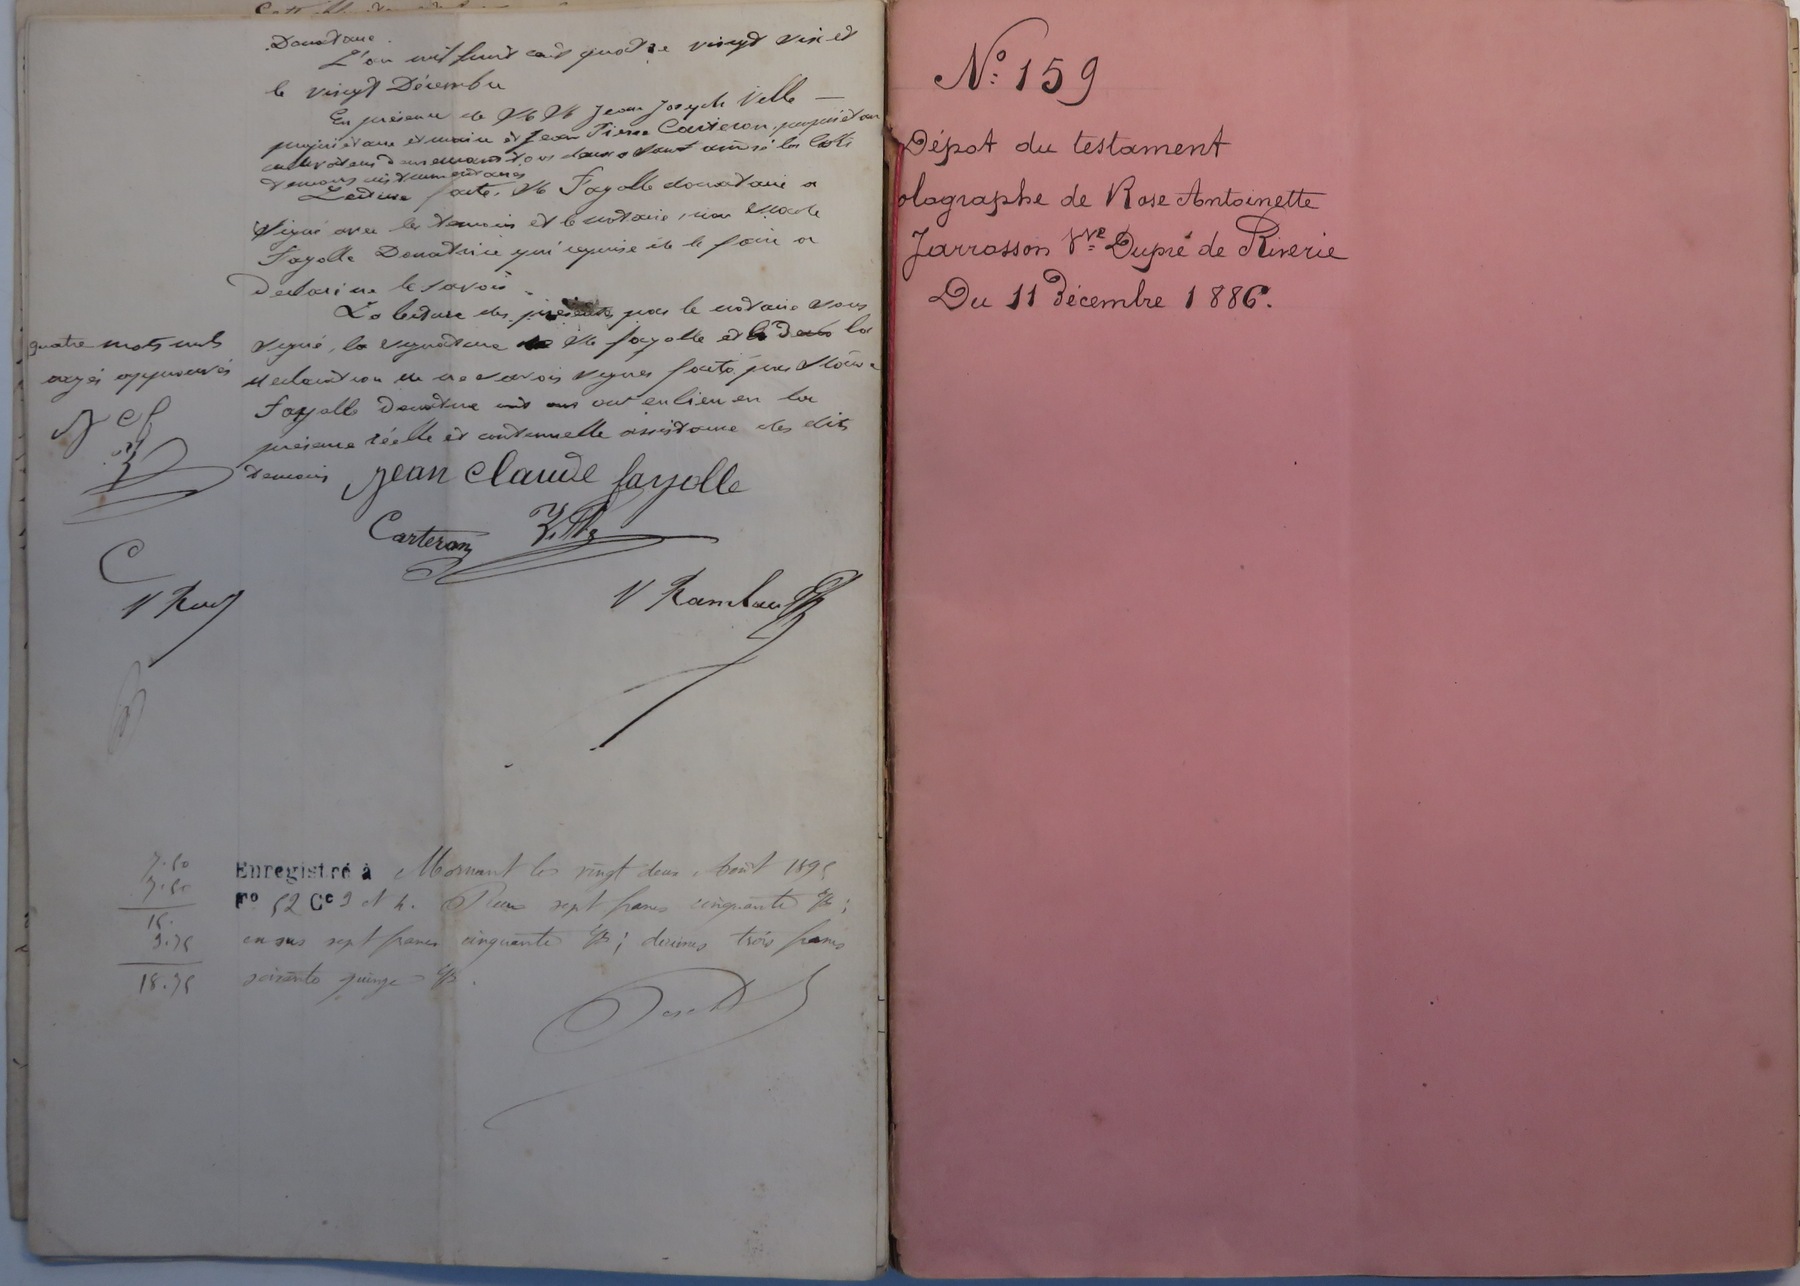 Donataire.
L'an mil huit cent quatre vingt six et
le vingt Décembre
En présence de M M Jean Joseph Ville —
propriétaire et maire et Jean Pierre Carteron, propriétaire
cultivateur demeurant tous deux a
témoins instrumentaires
Lecture faite, M Fayolle donataire a
signé avec les témoins et le notaire, non Made
Fayolle Donatrice qui requise de le faire a
declaré ne le savoir.
La lecture des présentes par le notaire sous
signé, la signature de M fayolle et la
déclaration de ne savoir signer faite par
Fayolle Donatrice ont eu lieu en la
présence réelle et continuelle assistance des dits
témoins
quatre mots nuls
rayés approuvés
J C f
Jean Claude fayolle
Carteron Ville
C
V Ra
V Rambaud
7.50
7.50
15.
3.75
18.75
Enregistré à Mornant le vingt deux Août 1895
Fo 52 Ce 3 et 4. Reçu sept francs cinquante c/s;
en sus sept francs cinquante c/s; décimes trois francs
soixante quinze c/s.
No: 159
Dépot du testament
olographe de Rose Antoinette
Jarrosson Vve Dupré de Riverie
Du 11 Décembre 1886.